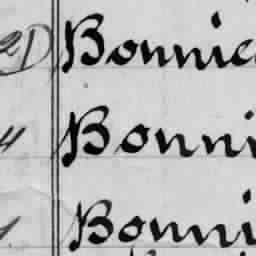 D Bonnie
" Bonni
Bonni